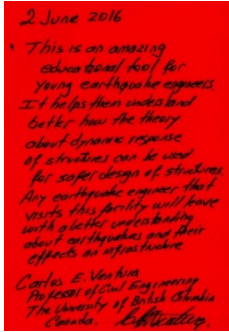 2 June 2016
This is an amazing
educational tool for
young earthquake engineers.
It helps them understand
better how the theory
about dynamic response
of structures can be used
for safer design of structures
Any earthquake engineer that
visits this facility will leave
with a better understanding
about earthquakes and their
effects on infrastructure
Carlos E. Ventura
Professor of Civil Engineering
The University of British Columbia
Canada.